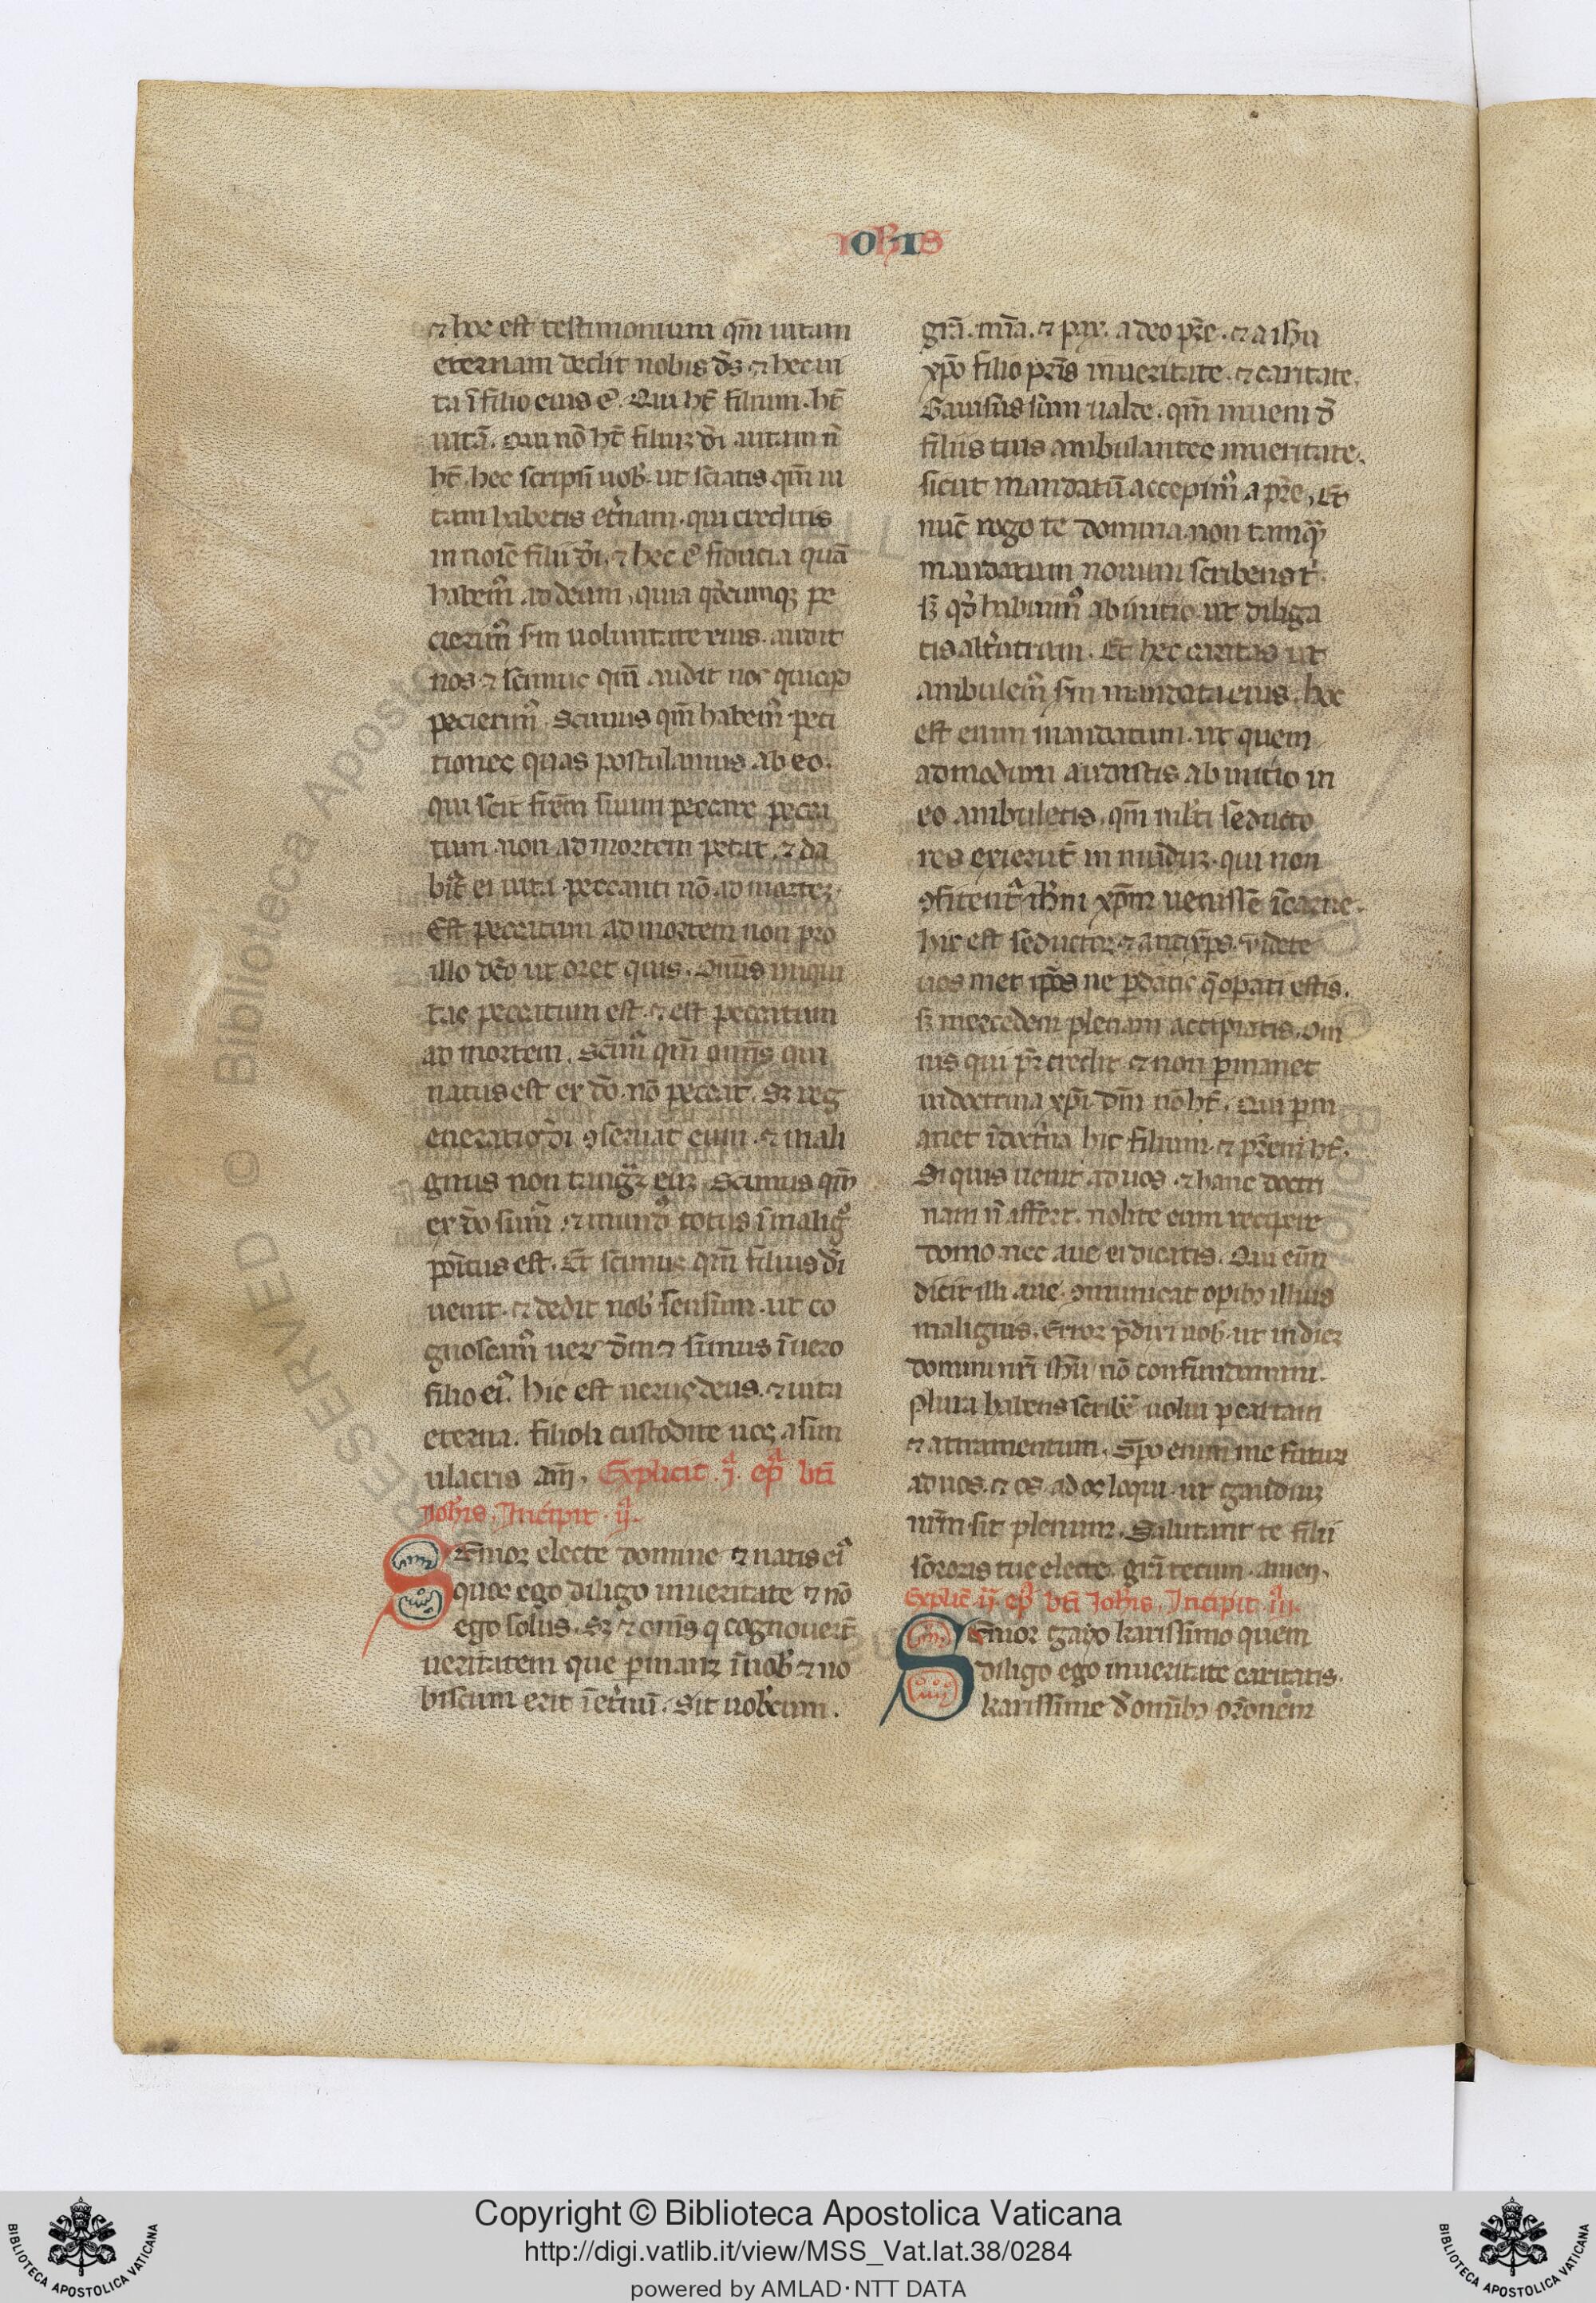 IOHIS
⁊ hoc est testimonium qm̄ uitam
eternam dedit nobis ds̄ ⁊ hec ui
ta ī filio eius ē. Qui ht̄ filium. ht̄
uitā. Qui nō ht̄ filiuꝫ dī uitam n̄
ht̄. hec scripsi uob̄. ut sciatis qm̄ ui
tam habetis et̄nam. qui creditis
in noīe filii dī. ⁊ hec ē fiducia quā
habemꝰ ad deum. quia qd̄cumqꝫ pe
cierimꝰ sm̄ uoluntatē eius. audit
nos ⁊ scimus qm̄ audit nos quicqͥd
pecierimꝰ. Scimus qm̄ habemꝰ peti
tiones quas postulamus ab eo.
qui scit fr̄em suum peccare pecca
tum non ad mortem petat. ⁊ da
bit̄ ei uita peccanti nō ad morteꝫ.
Est peccatum ad mortem non pro
illo dico ut oret quis. Omīs iniqui
tas peccatum est. ⁊ est peccatum
ad mortem. Scimꝰ qm̄ omīs qui
natus est ex dō. nō peccat. Sꝫ reg
eneratio dī ꝯseruat eum. ⁊ mali
gnus non tangit̄ euꝫ. Scimus qm̄
ex dō sumꝰ. ⁊ mundꝰ totus ī maligͦ
poītus est. Et scimus qm̄ filius dī
uenit. ⁊ dedit nob̄ sensum. ut co
gnoscamꝰ uerū dm̄ ⁊ simus ī uero
filio eiꝰ. hic est uerus deus. ⁊ uita
eterna. filioli custodite uos a sim
ulacris am̄. Explicit .j. epl̄a bt̄i
Ioh̄is. Incipit .ij.
Senior electe domine ⁊ natis eiꝰ
quos ego diligo in ueritate ⁊ nō
ego solus. Sꝫ ⁊ omīs q cognouert̄
ueritatem que ꝑmanꝫ ī nob̄ ⁊ no
biscum erit ī et̄nū. Sit uob̄cum.
grā. mīa. ⁊ pax. a deo pr̄e. ⁊ a ihū
xpō filio pr̄is in ueritate. ⁊ caritate.
Gauisus sum ualde. qm̄ inueni d̄
filiis tuis ambulantes in ueritate.
sicut mandatū accepimꝰ a pr̄e. Et
nūc rogo te domina. non tamqͣꝫ
mandatum nouum scribens t̄.
sꝫ qd̄ habuimꝰ ab initio ut diliga
tis alt̄utrum. Et hec caritas ut
ambulemꝰ sm̄ mandata eius. hoc
est enim mandatum. ut quem
admodum audistis ab initio in
eo ambuletis. qm̄ mlt̄i seducto
res exierūt in mūduꝫ. qui non
ꝯfitent̄ ih̄m xp̄m uenisse ī carne.
hic est seductor ⁊ antixp̄s. uidete
uos met ip̄os ne ꝑdatis q̄ oꝑati estis.
sꝫ mercedem plenam accipiatis. om
nis qui p̄cedit ⁊ non ꝑmanet
in doctrina xp̄i. dm̄ nō ht̄. Qui ꝑm
anet ī doct̄na hic filium. ⁊ pr̄em ht̄.
Si quis uenit ad uos. ⁊ hanc doctri
nam n̄ affert. nolite eum recipere
domo. nec aue ei dicatis. Qui eīm
dicit illi aue. ꝯmunicat oꝑibꝫ illius
malignis. Error p̄dixi uob̄. ut in dieꝫ
domini nr̄i ihū nō confundamini.
Plura habens scribē uobis uolui ꝑ cartam
⁊ atramentum. Spō enim me futuꝝ
ad uos. ⁊ os ad os loqui. ut gaudiuꝫ
ur̄m sit plenum. Salutant te filii
sororis tue electe. grā tecum. amen.
Explic̄ .ij. epl̄a bt̄i Ioh̄is. Incipit .iij.
Senior gaxo karissimo quem
diligo ego in ueritate caritatis.
karissime d̄ omībꝫ orōnem
Copyright © Biblioteca Apostolica Vaticana
http://digi.vatlib.it/view/MSS_Vat.lat.38/0284
powered by AMLAD·NTT DATA